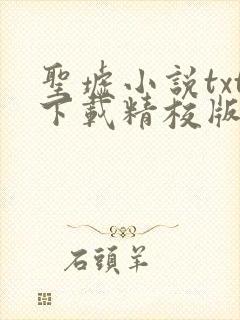 聖墟小説txt
下載精校版
石頭羊